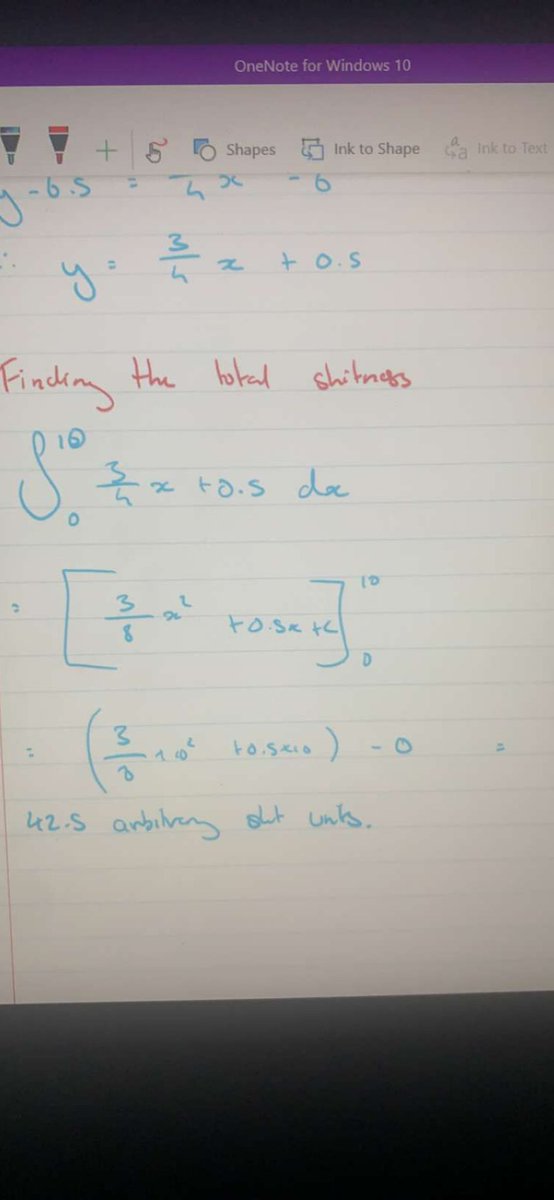 OneNote for Windows 10
Shapes Ink to Shape Ink to Text
y - 6.5 = 3/4 x - 6
∴ y = 3/4 x + 0.5
Finding the total shitness
∫₀¹⁰ 3/4 x + 0.5 dx
= [ 3/8 x² + 0.5x + c ]₀¹⁰
= ( 3/8 × 10² + 0.5×10 ) - 0 =
42.5 arbitrary shit units.